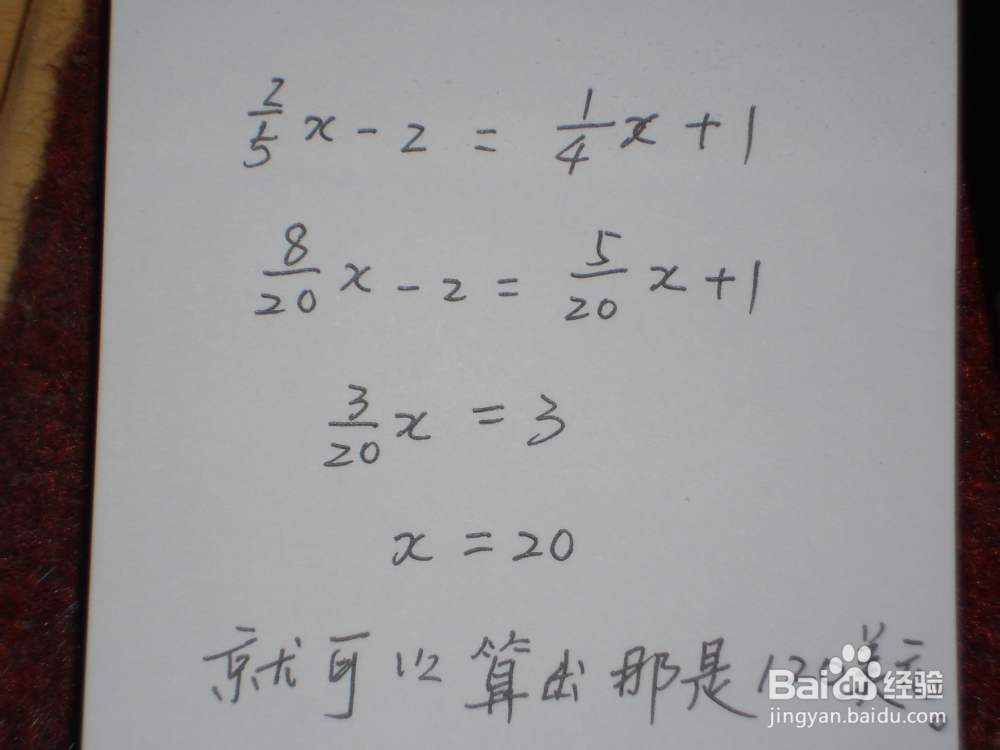 2/5 x - 2 = 1/4 x + 1
8/20 x - 2 = 5/20 x + 1
3/20 x = 3
x = 20
就可以算出那是120美元。
Baidu经验
jingyan.baidu.com